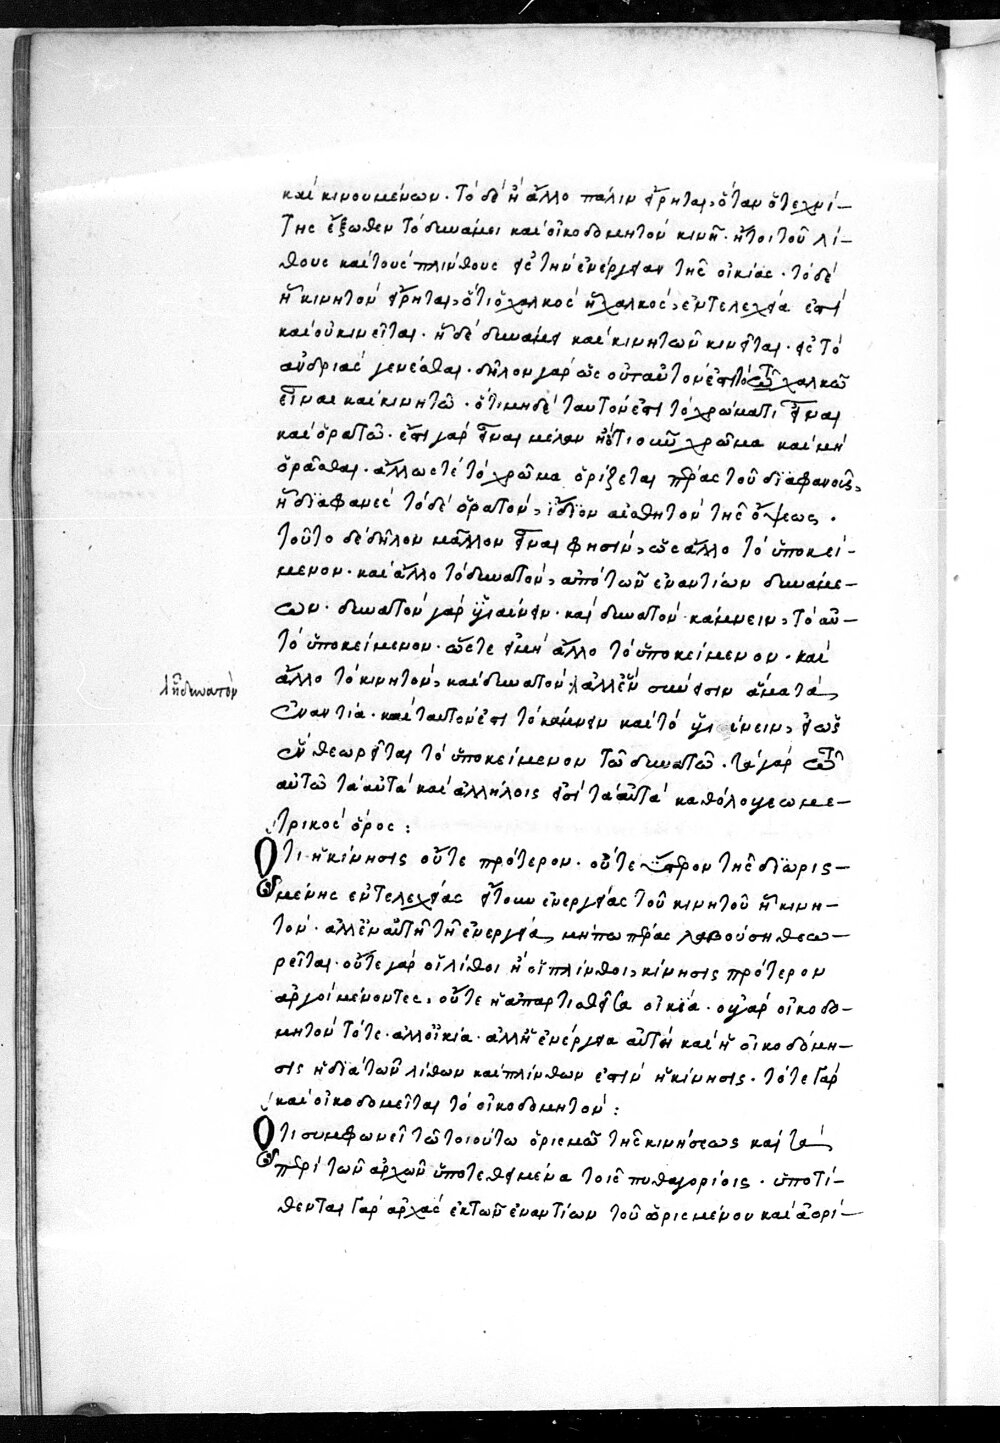 καὶ κινουμένων. τὸ δὲ ἢ ἄλλο πάλιν εἴρηται, ὅταν ὁ τεχνί-
της ἔξωθεν τὸ δυνάμει καὶ οἰκοδομητὸν κινῇ. ἤτοι τοῦ λί-
θους καὶ τοὺς πλίνθους εἰς τὴν ἐνέργειαν τῆς οἰκίας. τὸ δὲ
ἢ κινητὸν εἴρηται, ὅτι ὁ χαλκὸς ἢ χαλκός, ἐντελεχεία ἐστὶ
καὶ οὐ κινεῖται. ἢ δὲ δυνάμει καὶ κινητὸν κινεῖται. εἰς τὸ
ἀνδριὰς γενέσθαι. δῆλον γὰρ ὡς οὐ ταὐτόν ἐστι τῷ χαλκῷ
εἶναι καὶ κινητῷ. ὅτι μηδὲ ταὐτόν ἐστι τὸ χρώματι εἶναι
καὶ ὁρατῷ. ἔστι γὰρ εἶναι μέλαν ἤτι οὖν χρῶμα καὶ μὴ
ὁρᾶσθαι. ἄλλως τὲ τὸ χρῶμα ὁρίζεται πέρας τοῦ διαφανοῦς,
ἢ διαφανὲς τὸ δὲ ὁρατόν, ἴδιον αἰσθητὸν τῆς ὄψεως.
τοῦτο δὲ δῆλον μᾶλλον εἶναι φησίν, ὡς ἄλλο τὸ ὑποκεί-
μενον. καὶ ἄλλο τὸ δυνατόν, ἀπὸ τῶν ἐναντίων δυνάμε-
ων. δυνατὸν γὰρ ὑγιαίνειν. καὶ δυνατὸν κάμνειν, τὸ αὐ-
τὸ ὑποκείμενον. ὥστε εἰ μὴ ἄλλο τὸ ὑποκείμενον. καὶ
ἄλλο τὸ κινητόν, καὶ δυνατόν. ἀλλ' ἓν συνήσιν ἅμα τὰ
ἐναντία. καὶ ταυτόν ἐστι τὸ κάμνειν καὶ τὸ ὑγιαίνειν, εἴπως
ἓν θεωρεῖται τὸ ὑποκείμενον τῷ δυνατῷ. τὰ γὰρ τῷ
αὐτῷ τὰ αὐτὰ καὶ ἀλλήλοις ἐστὶ τὰ αὐτὰ καθόλου γεωμε-
τρικὸς ὅρος:
Ὅτι ἡ κίνησις οὔτε πρότερον. οὔτε ὕστερον τῆς διωρισ-
μένης ἐντελεχείας ἤτουν ἐνεργείας τοῦ κινητοῦ ἢ κινη-
τόν. ἀλλ' ἐν αὐτῇ τῇ ἐνεργείᾳ μήπω πέρας λαβούσῃ θεω-
ρεῖται. οὔτε γὰρ οἱ λίθοι ἢ οἱ πλίνθοι, κίνησις πρότερον
ἀργοὶ μένοντες, οὔτε ἡ ἀπαρτισθεῖσα οἰκία. οὐ γὰρ οἰκοδο-
μητὸν τότε. ἀλλ' οἰκία. ἀλλ' ἡ ἐνέργεια αὐτὴ καὶ ἡ οἰκοδόμη-
σις ἡ διὰ τῶν λίθων καὶ πλίνθων ἐστὶν ἡ κίνησις. τότε γὰρ
καὶ οἰκοδομεῖται τὸ οἰκοδομητόν:
Ὅτι συμφωνεῖ τῷ τοιούτῳ ὁρισμῷ τῆς κινήσεως καὶ τὰ
περὶ τῶν ἀρχῶν ὑποτεθειμένα τοῖς πυθαγορίοις. ὑποτί-
θενται γὰρ ἀρχὰς ἐκ τῶν ἐναντίων τοῦ ὡρισμένου καὶ ἀορί-